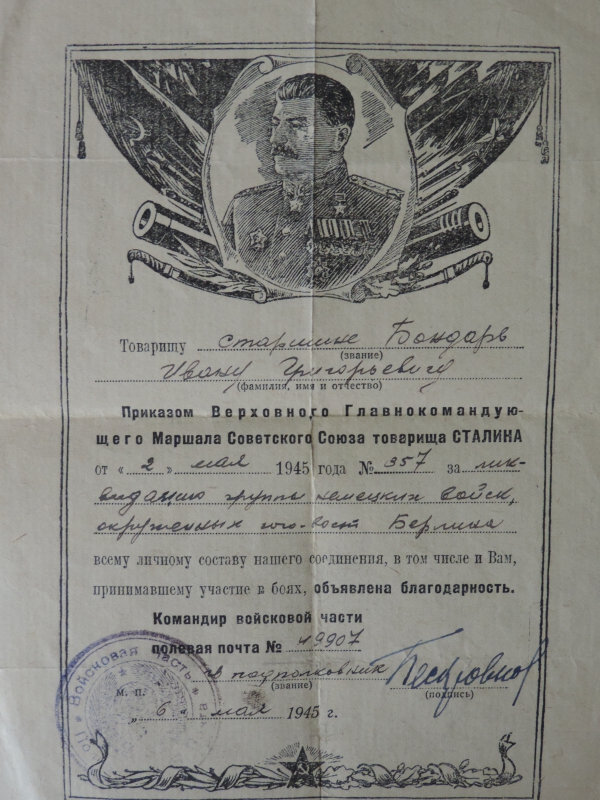 Товарищу старшине Бондарь
(звание)
Ивану Григорьевичу
(фамилия, имя и отчество)
Приказом Верховного Главнокомандую-
щего Маршала Советского Союза товарища СТАЛИНА
от «2» мая 1945 года № 357 за лик-
видацию группы немецких войск,
окруженных юго-вост Берлина
всему личному составу нашего соединения, в том числе и Вам,
принимавшему участие в боях, объявлена благодарность.
Командир войсковой части
полевая почта № 49907
гв подполковник
(звание)
(подпись)
Войсковая часть
м. п.
„6" мая 1945 г.